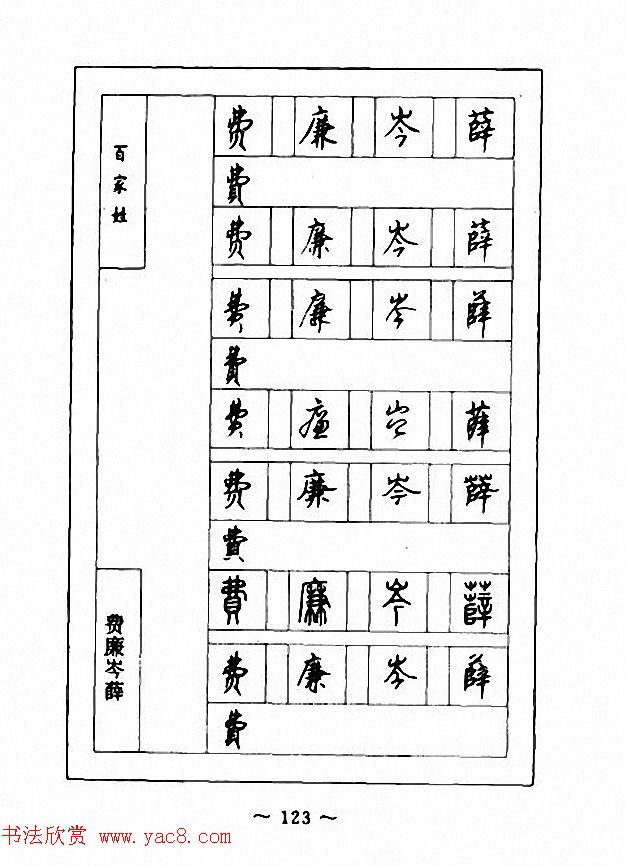 百家姓
费 廉 岑 薛
費
费 廉 岑 薛
费 廉 岑 薛
費
费 廉 岑 薛
费 廉 岑 薛
費
費 廉 岑 薛
费廉岑薛
费 廉 岑 薛
費
~ 123 ~
书法欣赏 www.yac8.com